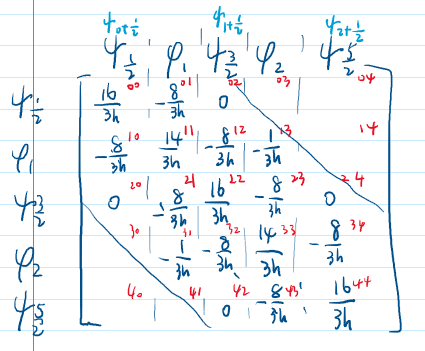 ψ₀₊½ ψ₁₊½ ψ₂₊½
ψ½ φ₁ ψ3/2 φ₂ ψ5/2
ψ½ 16/3h 00 -8/3h 01 0 02 03 04
φ₁ -8/3h 10 14/3h 11 -8/3h 12 -1/3h 13 14
ψ3/2 0 20 -8/3h 21 16/3h 22 -8/3h 23 0 24
φ₂ 30 -1/3h 31 -8/3h 32 14/3h 33 -8/3h 34
ψ5/2 40 41 0 42 -8/3h 43 16/3h 44